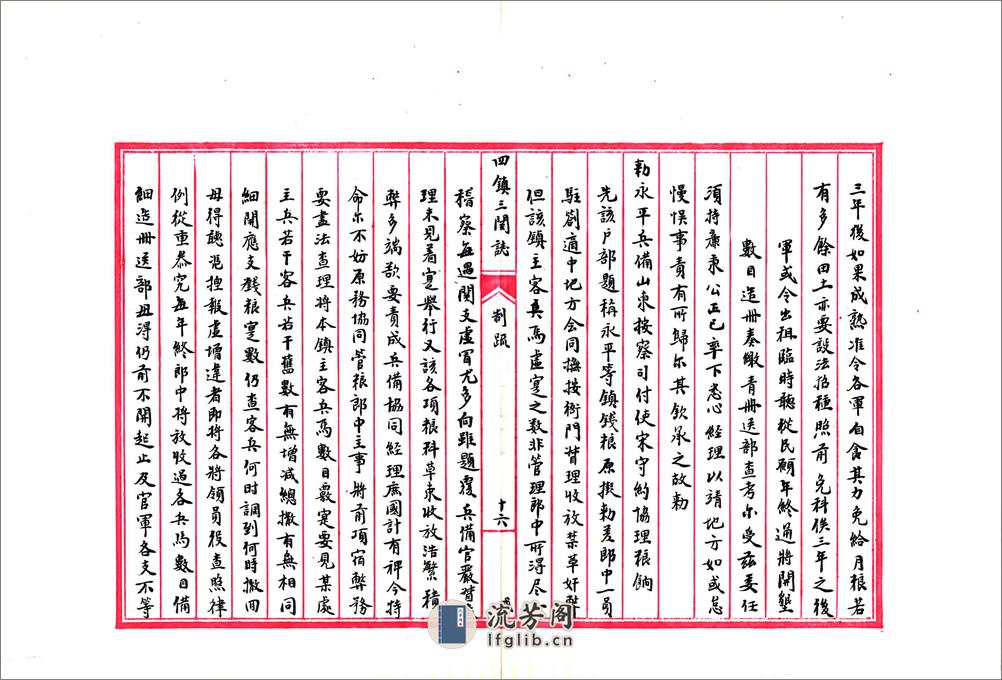 三年後如果成熟准令各軍自食其力免給月粮若
有多餘田土亦要設法招種照前免科俟三年之後
軍或令出租臨時聽從民願年終通將開墾
數目造冊奏繳青冊送部查考尔受茲委任
須持廉秉公正己率下悉心經理以靖地方如或怠
慢悮事責有所歸尔其欽承之故勅
勅永平兵備山東按察司付使宋守約協理粮餉
先該户部題稱永平等鎮錢粮原撥勅差郎中一員
駐劄適中地方会同撫按衙門督理收放禁革奸弊
但該鎮主客兵馬虚寔之数非管理郎中所得尽
四鎮三関誌
制疏
十六
稽察每遇関支虚冒尤多向雖題覆兵備官嚴督
理未見着寔舉行又該各項粮料草束收放浩繁積
弊多端欲要責成兵備協同經理庶國計有裨今特
命尔不妨原務協同管粮郎中主事將前項宿弊務
要盡法查理將本鎮主客兵馬數目覈寔要見某處
主兵若干客兵若干舊數有無增减總撒有無相同
細開應支錢粮寔數仍查客兵何時調到何時撤回
毋得聽凴捏報虚增違者即將各將領員役查照律
例從重叅究每年終郎中將放收過各兵馬數目備
細造冊送部毋得仍前不開起止及官軍各支不等
流芳阁
lfglib.cn